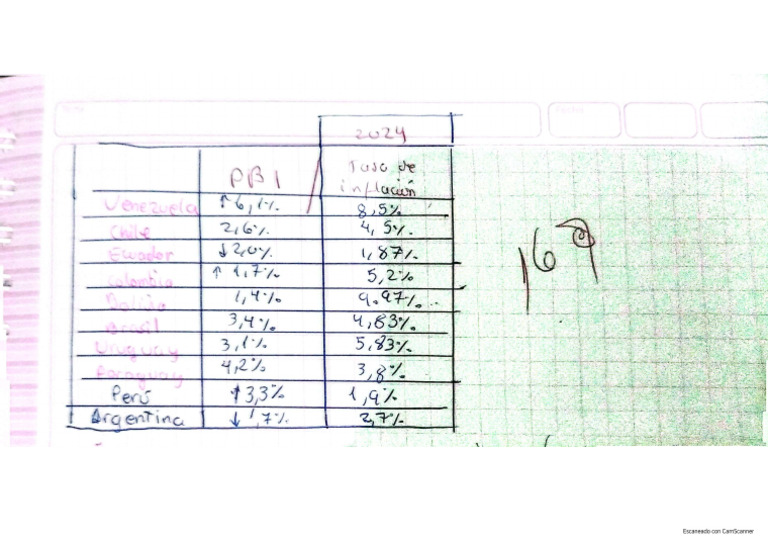 2024
PBI / Tasa de
inflación
Venezuela ↑6,1% 8,5%
Chile 2,6% 4,5%
Ecuador ↓2,0% 1,87%
Colombia ↑1,7% 5,2%
Bolivia 1,4% 9.97%
Brasil 3,4% 4,83%
Uruguay 3,1% 5,83%
Paraguay 4,2% 3,8%
Perú ↑3,3% 1,9%
Argentina ↓1,7% 2,7%
Escaneado con CamScanner